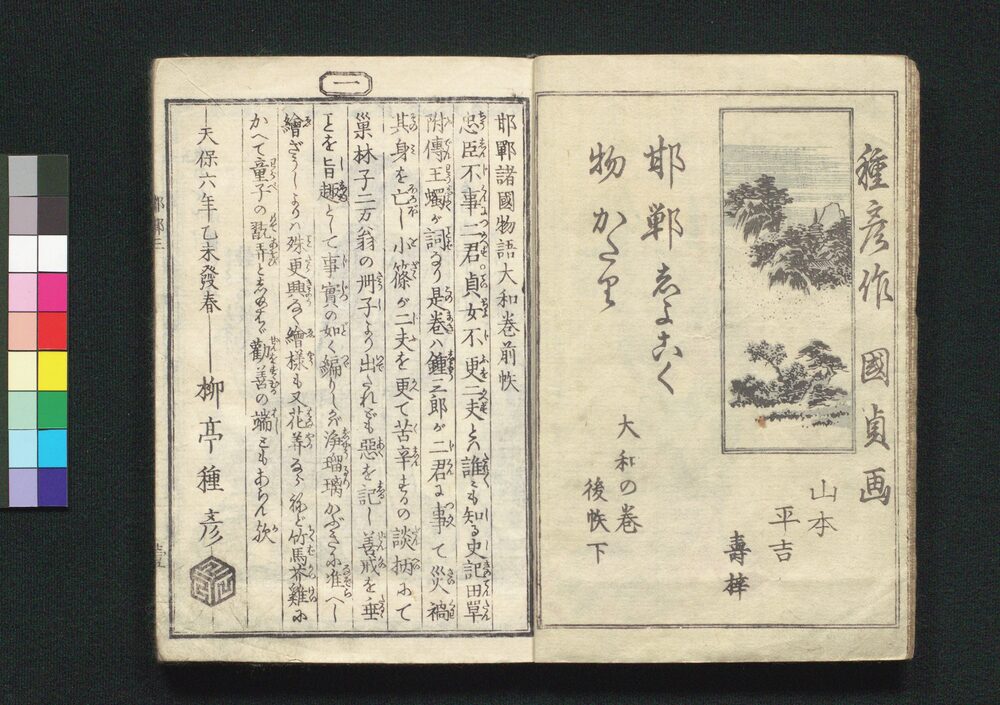 種彦作 國貞画
山本
平吉
壽梓
邯鄲志よこく
物かたり
大和の巻
後帙下
一
邯鄲諸國物語大和巻前帙
忠臣不事二君貞女不更二夫とハ誰も知る史記田單
附傳王蠋が詞なり是巻ハ鐘三郎が二君に事て災禍
其身を亡し小篠が二夫を更て苦辛するの談柄にて
巣林子二万翁の冊子より出たれども惡を記し善戒を垂
ことを旨趣として事實の如く編りしが浄瑠璃かぶきに准へし
繪ざうしよりハ殊更興なく繪様も又花美ならねど竹馬芥雞に
かへて童子の翫弄ともあらバ勸善の端ともならん歟
天保六年乙未發春 柳亭種彦